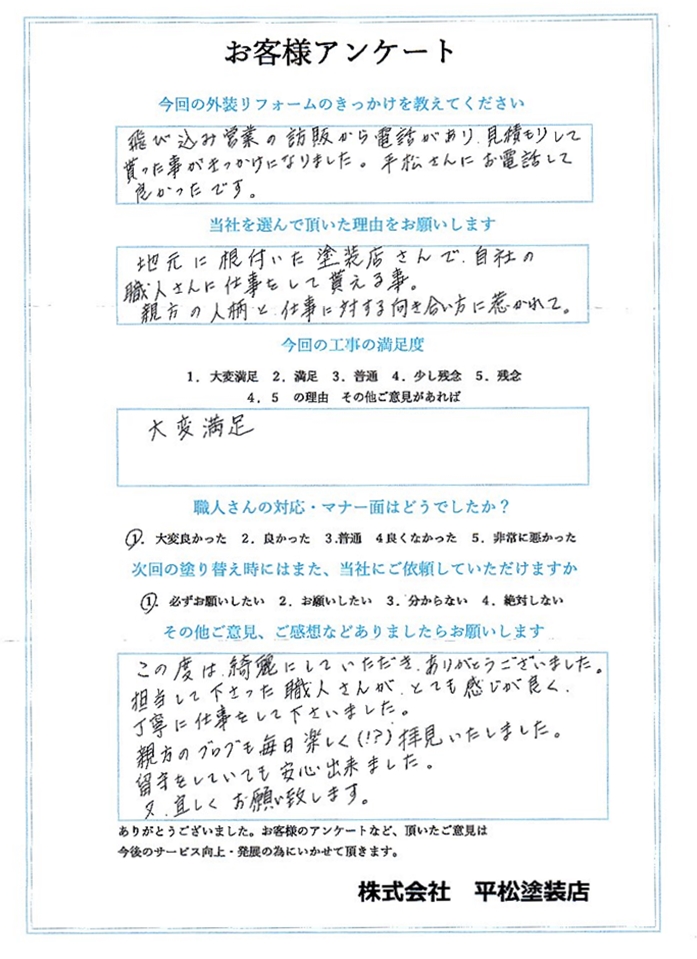 お客様アンケート
今回の外装リフォームのきっかけを教えてください
飛び込み営業の訪販から電話があり、見積もりして
貰った事がきっかけになりました。平松さんにお電話して
良かったです。
当社を選んで頂いた理由をお願いします
地元に根付いた塗装店さんで、自社の
職人さんに仕事をして貰える事。
親方の人柄と、仕事に対する向き合い方に惹かれて。
今回の工事の満足度
1. 大変満足 2. 満足 3. 普通 4. 少し残念 5. 残念
4. 5 の理由 その他ご意見があれば
大変満足
職人さんの対応・マナー面はどうでしたか?
1. 大変良かった 2. 良かった 3.普通 4良くなかった 5. 非常に悪かった
次回の塗り替え時にはまた、当社にご依頼していただけますか
1. 必ずお願いしたい 2. お願いしたい 3. 分からない 4. 絶対しない
その他ご意見、ご感想などありましたらお願いします
この度は、綺麗にしていただき、ありがとうございました。
担当して下さった職人さんが、とても感じが良く、
丁寧に仕事をして下さいました。
親方のブログも毎日楽しく(!?)拝見いたしました。
留守をしていても安心出来ました。
又、宜しくお願い致します。
ありがとうございました。お客様のアンケートなど、頂いたご意見は
今後のサービス向上・発展の為にいかせて頂きます。
株式会社 平松塗装店